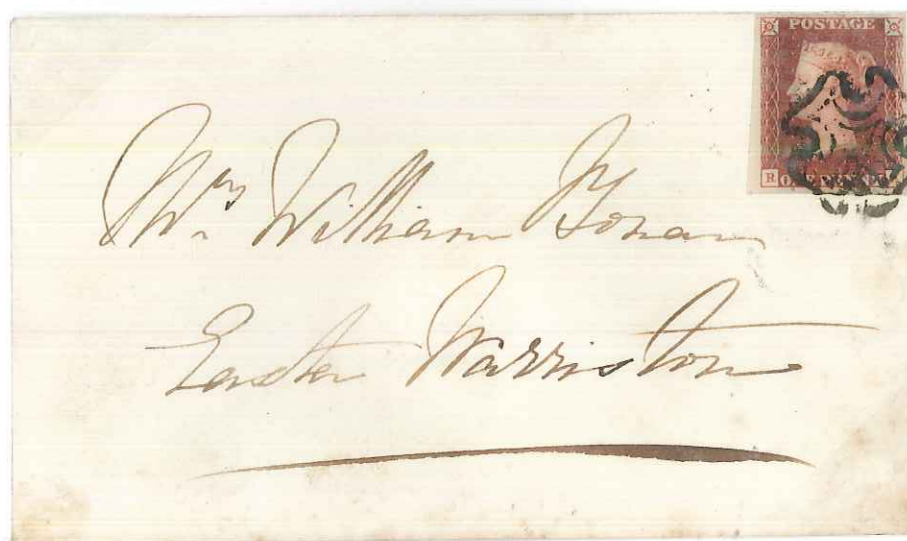 POSTAGE
R ONE PENNY
Mrs. William Bonar
Easter Warriston